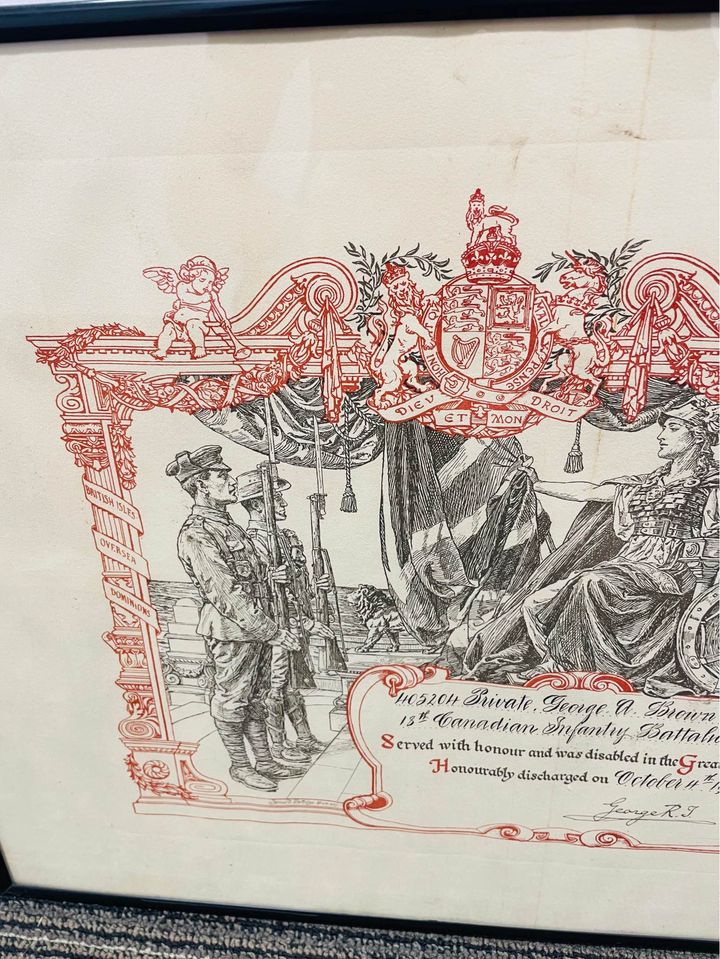 HONI SOIT QUI MAL Y PENSE
DIEV ET MON DROIT
BRITISH ISLES
OVERSEA
DOMINIONS
405204 Private, George A. Brown
18th Canadian Infantry Battalio
Served with honour and was disabled in the Grea
Honourably discharged on October 4th 19
George R.I.